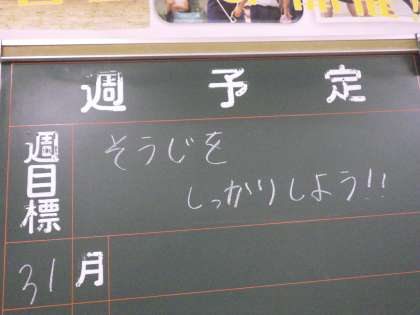 週予定
週目標
そうじを
しっかりしよう!!
31 月